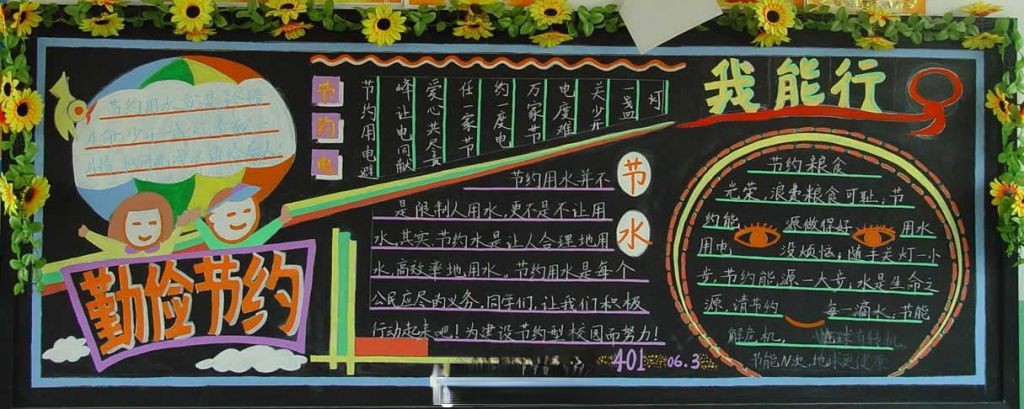 节约用水
节约电
节约用电避
峰让电同献
爱心共尽责
任一家节
约一度电
万家节
电度难
关少开
一盏
灯
我能行
节水
节约用水并不
是限制人用水,更不是不让用
水,其实,节约水是让人合理地用
水,高效率地用水。节约用水是每个
公民应尽的义务,同学们,让我们积极
行动起来吧!为建设节约型校园而努力!
勤俭节约
401 06.3
节约粮食
光荣,浪费粮食可耻,节
约能源做保好用水
用电没烦恼,随手关灯一小
步,节约能源一大步,水是生命之
源,请节约每一滴水,节能
解危机,
节能N次,地球